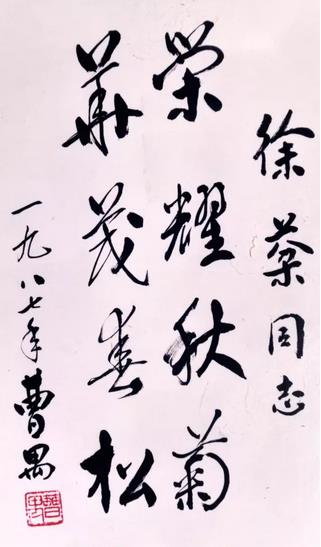 徐棻同志
荣耀秋菊
華茂春松
一九八七年 曹禺